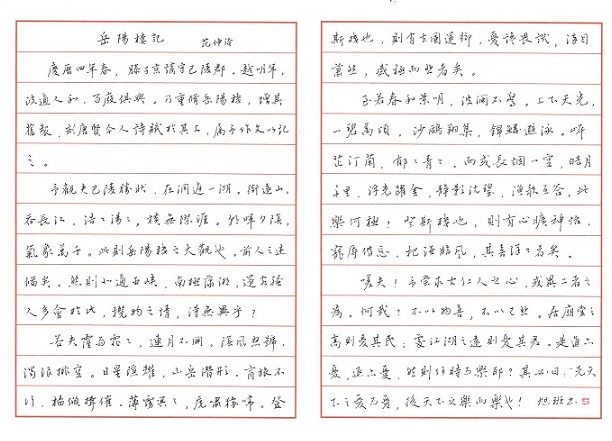 岳陽樓記 范仲淹
慶曆四年春，滕子京謫守巴陵郡。越明年，
政通人和，百廢俱興。乃重脩岳陽樓，增其
舊製，刻唐賢今人詩賦於其上，屬予作文以記
之。
予觀夫巴陵勝狀，在洞庭一湖。銜遠山，
吞長江，浩浩湯湯，橫無際涯。朝暉夕陰，
氣象萬千。此則岳陽樓之大觀也。前人之述
備矣。然則北通巫峽，南極瀟湘，遷客騷
人多會於此，覽物之情，得無異乎？
若夫霪雨霏霏，連月不開，陰風怒號，
濁浪排空。日星隱耀，山岳潛形。商旅不
行，檣傾楫摧。薄暮冥冥，虎嘯猿啼。登
斯樓也，則有去國還鄉，憂讒畏譏，滿目
蕭然，感極而悲者矣。
至若春和景明，波瀾不驚。上下天光，
一碧萬頃，沙鷗翔集，錦鱗游泳。岸
芷汀蘭，郁郁青青。而或長煙一空，皓月
千里，浮光躍金，靜影沈璧，漁歌互答，此
樂何極！登斯樓也，則有心曠神怡，
寵辱偕忘，把酒臨風，其喜洋洋者矣。
嗟夫！予嘗求古仁人之心，或異二者之
為。何哉？不以物喜，不以己悲。居廟堂之
高則憂其民；處江湖之遠則憂其君。是進亦
憂，退亦憂，然則何時而樂耶？其必曰：先天
下之憂而憂，後天下之樂而樂也！